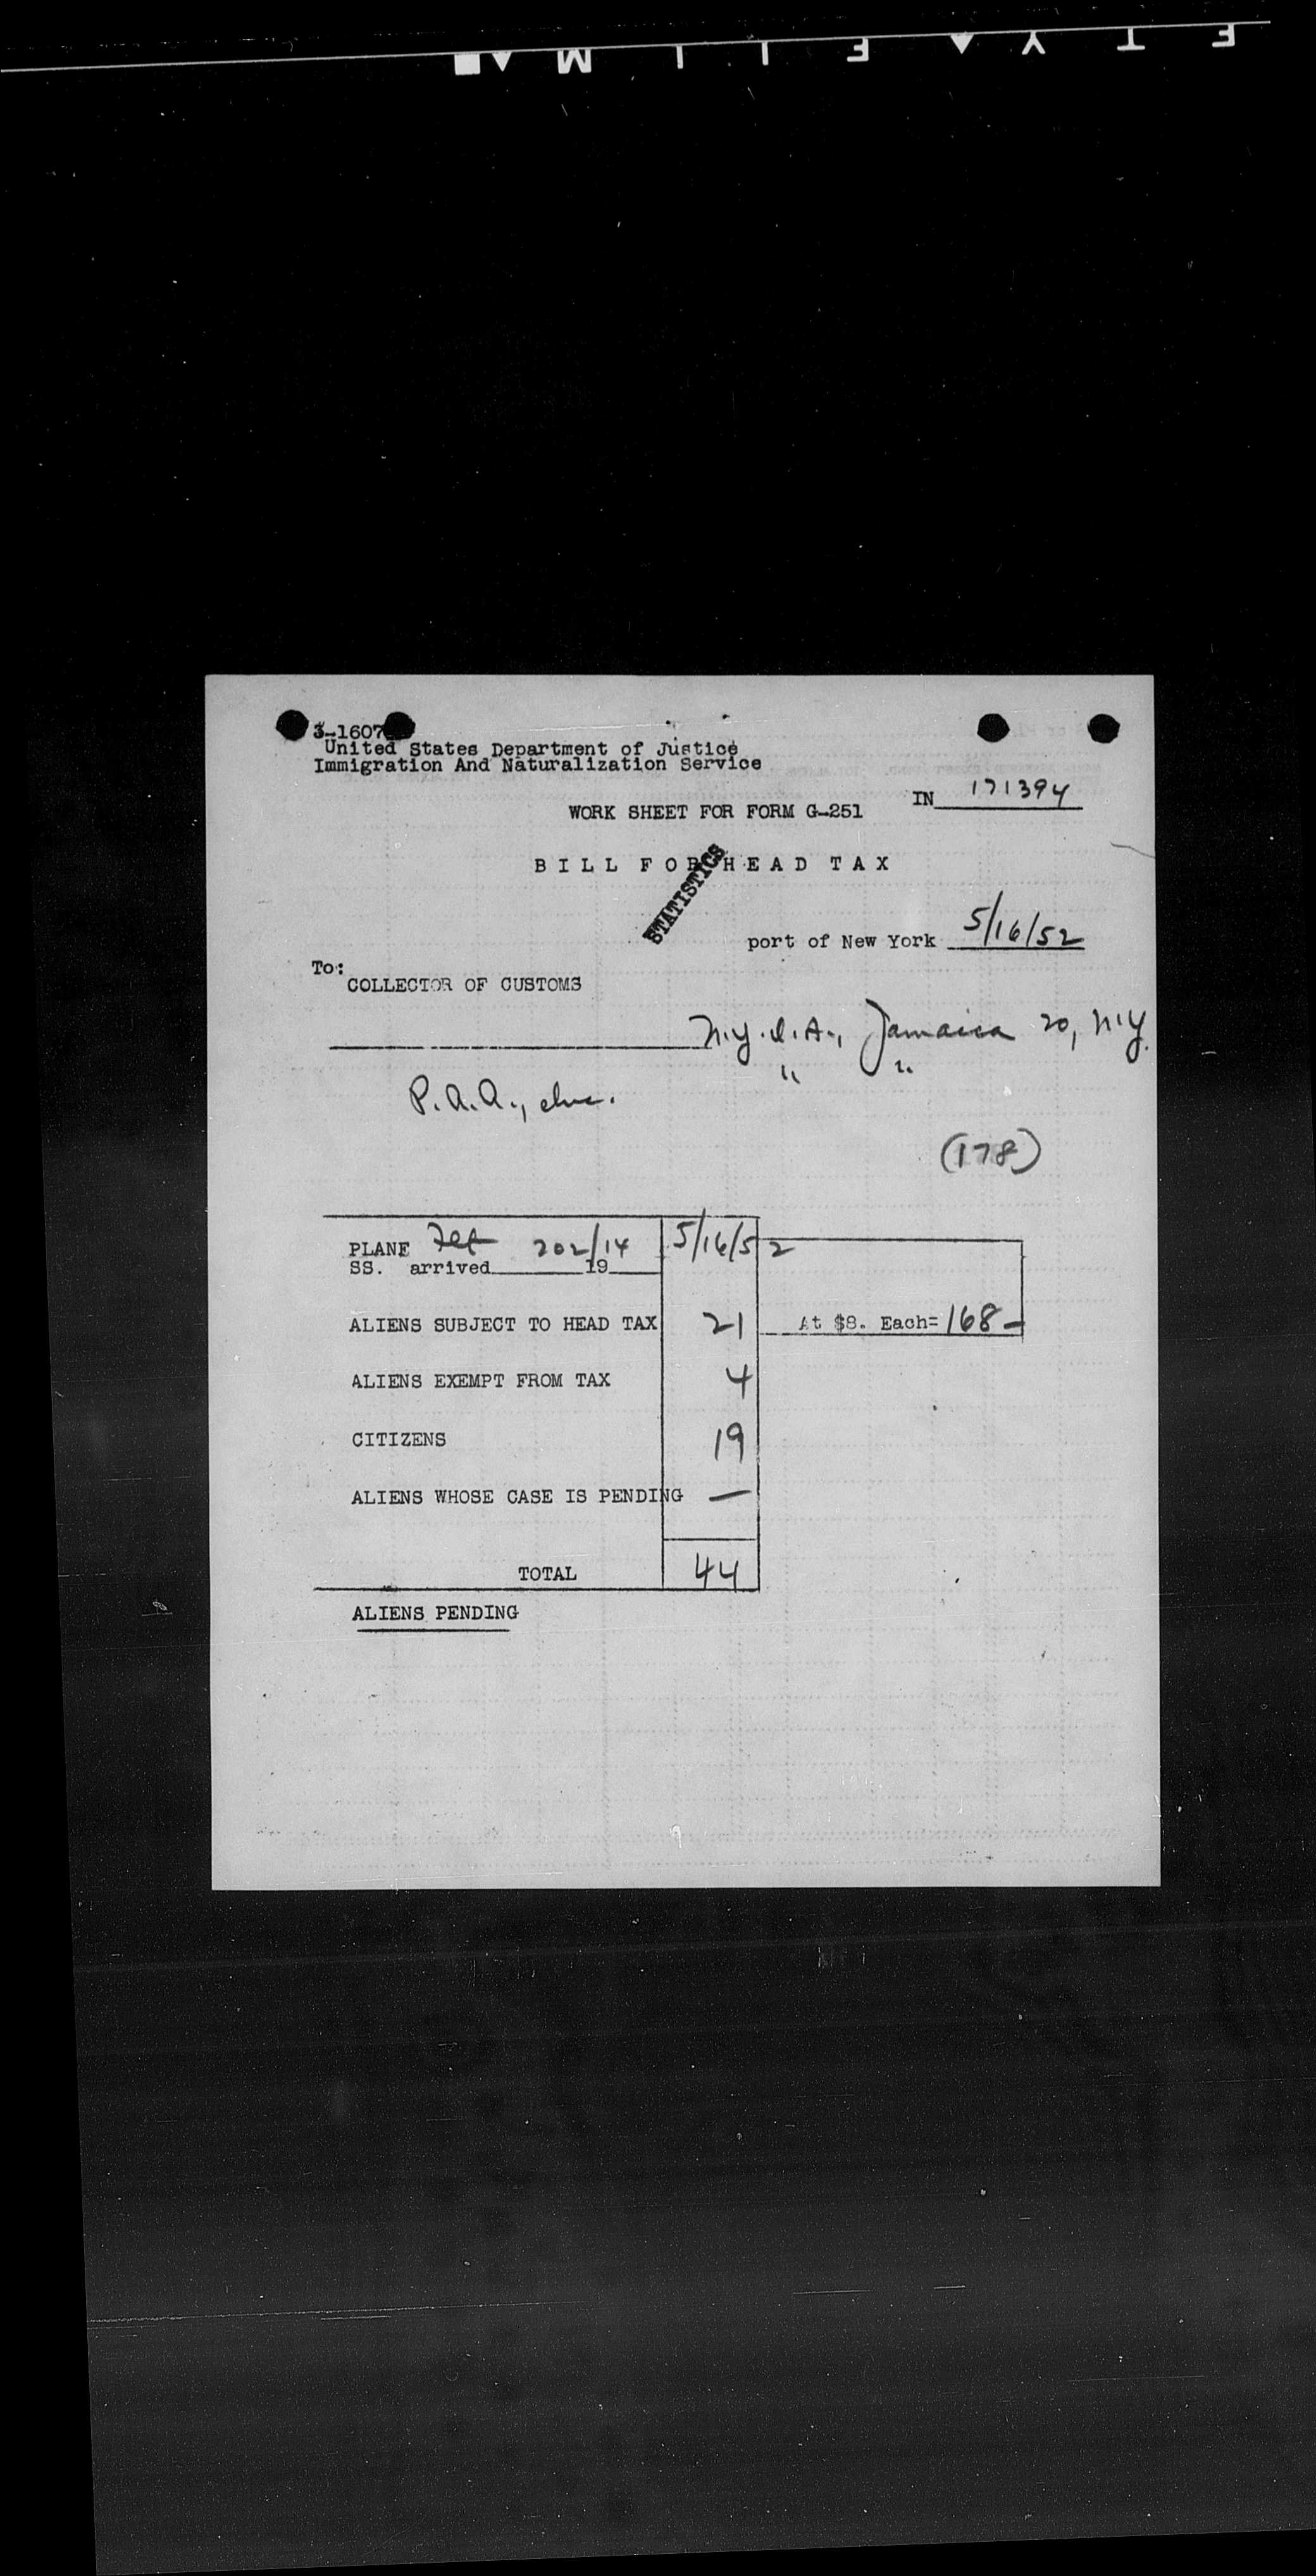 SAFETY FILM
3-1607
United States Department of Justice
Immigration And Naturalization Service
IN 171394
WORK SHEET FOR FORM G-251
BILL FOR HEAD TAX
STATISTICS
port of New York 5/16/52
To:
COLLECTOR OF CUSTOMS
N.Y.I.A., Jamaica 20, N.Y.
" "
P.A.A., Inc.
(178)
PLANE 202/14 5/16/52
SS. arrived 19
ALIENS SUBJECT TO HEAD TAX 21 At $8. Each= 168-
ALIENS EXEMPT FROM TAX 4
CITIZENS 19
ALIENS WHOSE CASE IS PENDING —
TOTAL 44
ALIENS PENDING